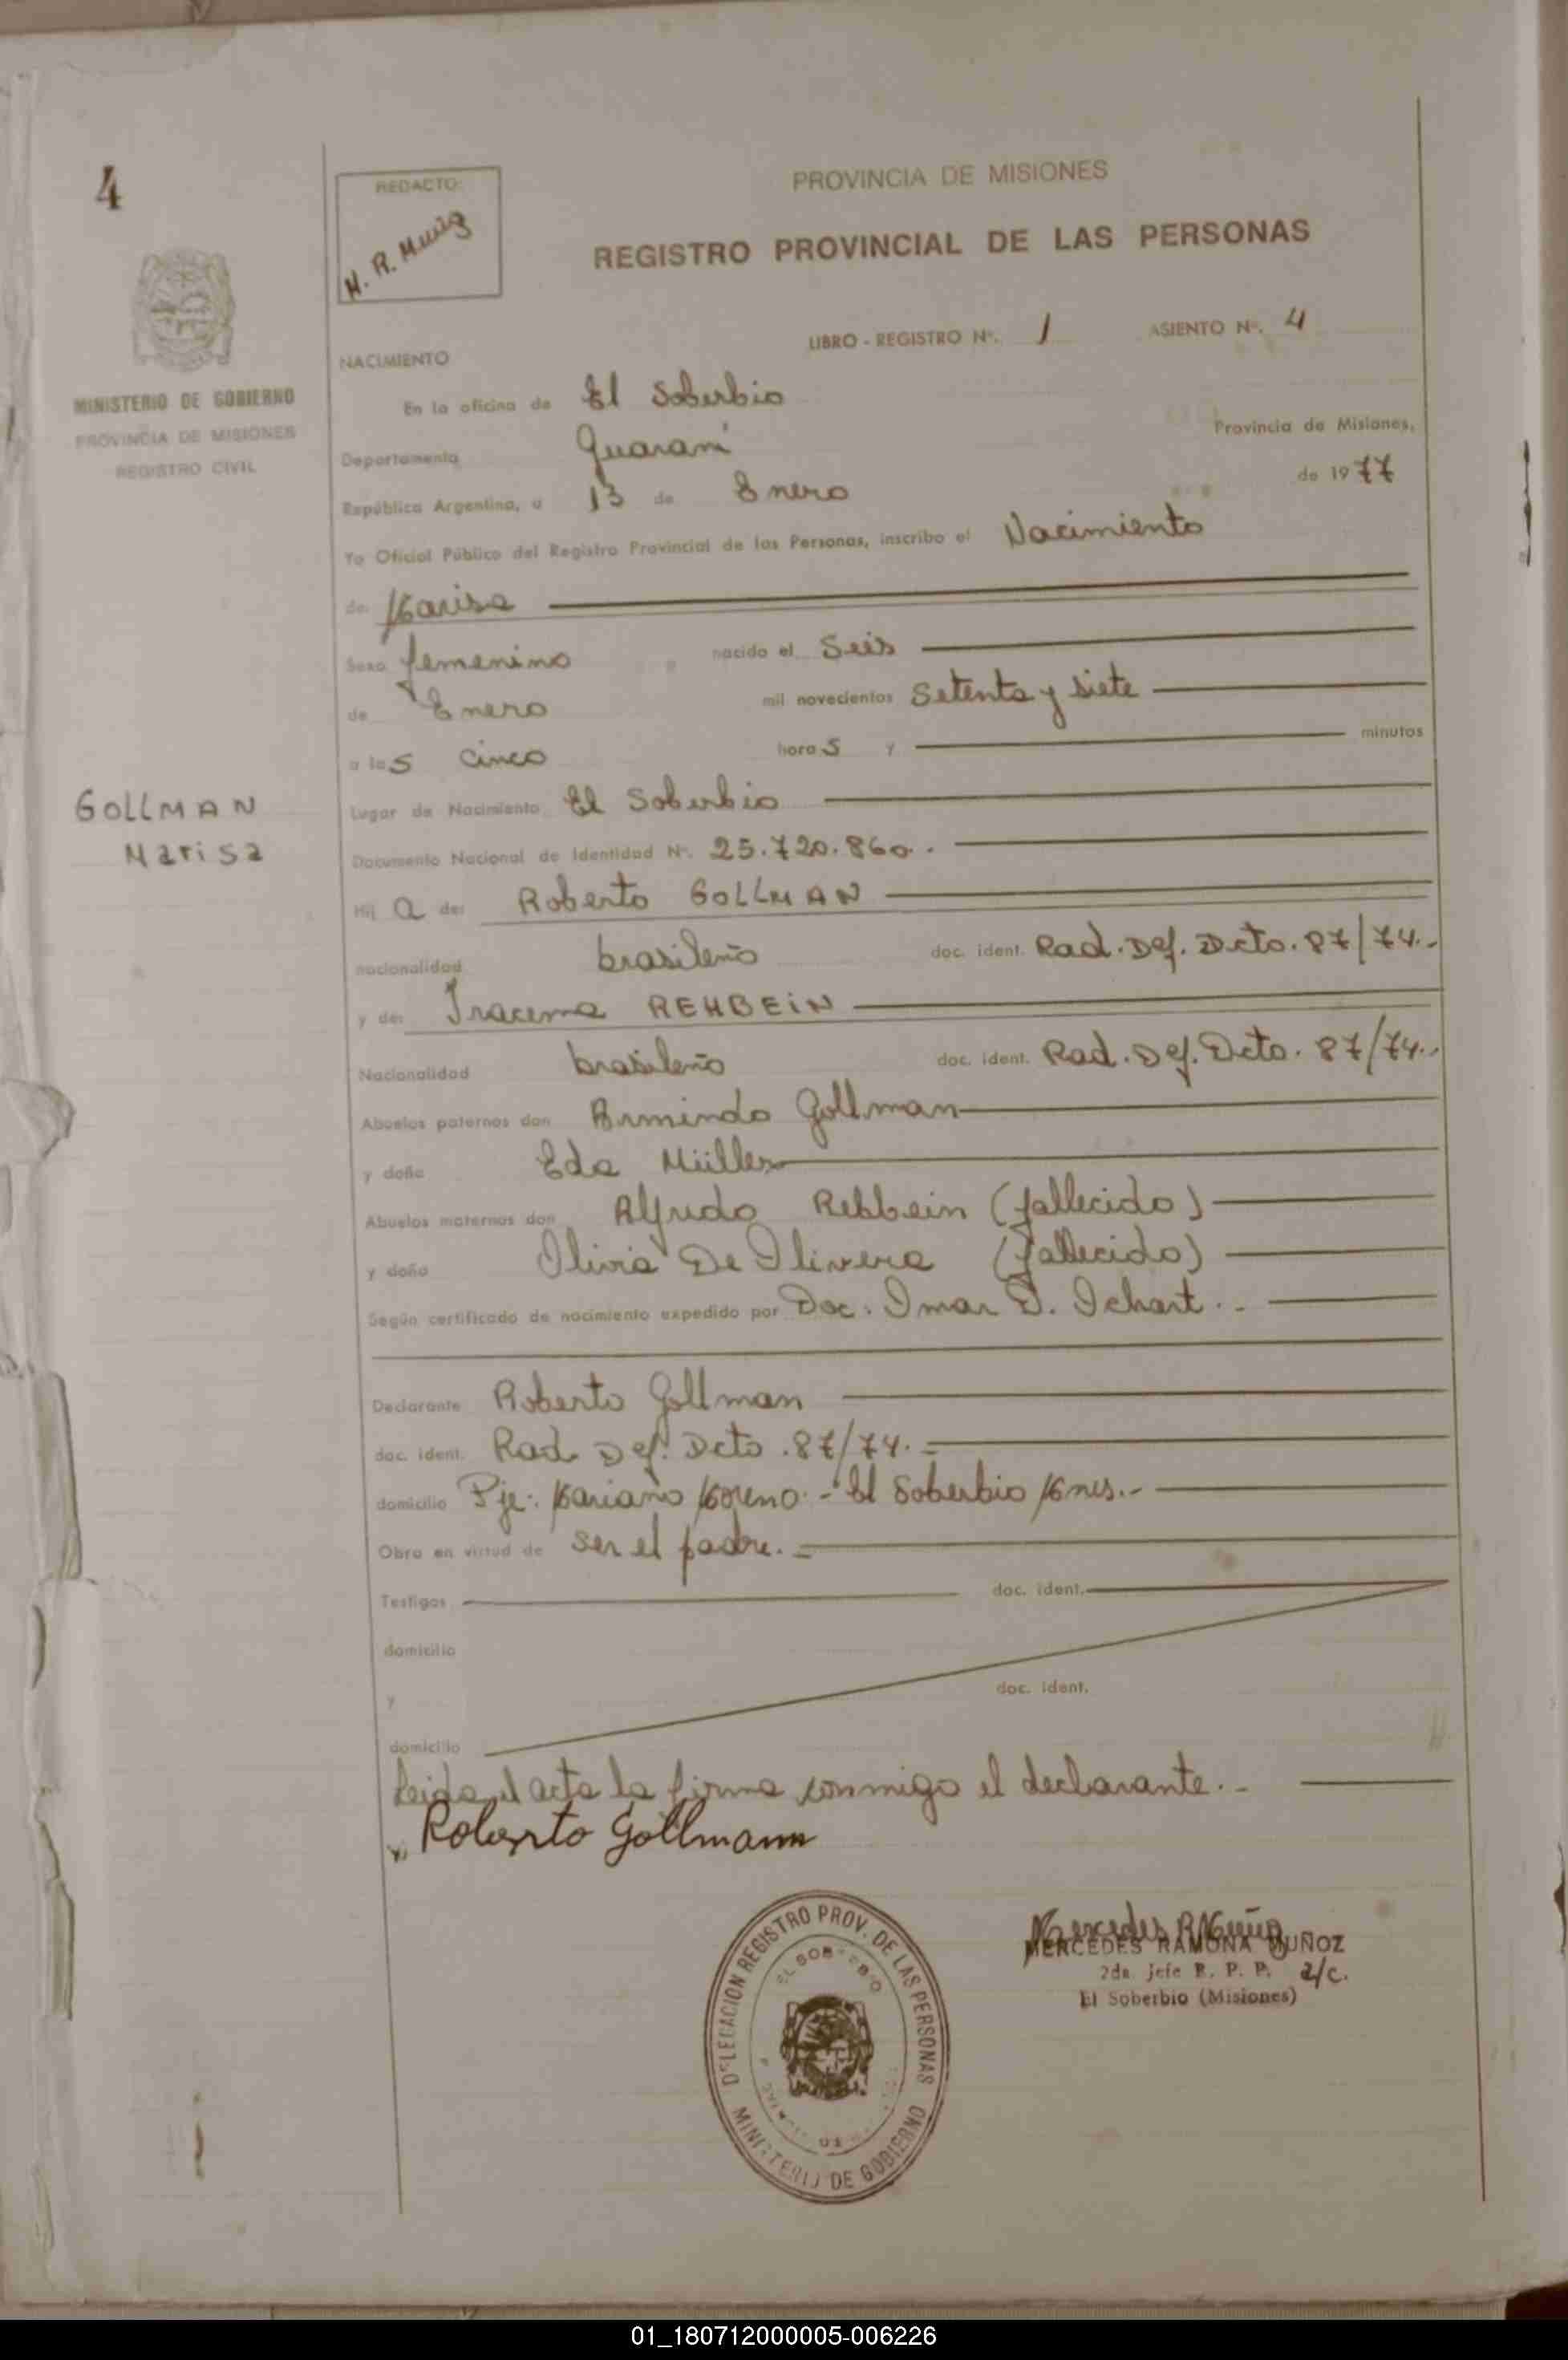 4
REDACTO:
PROVINCIA DE MISIONES
REGISTRO PROVINCIAL DE LAS PERSONAS
LIBRO - REGISTRO Nº. 1 ASIENTO Nº. 4
MINISTERIO DE GOBIERNO
PROVINCIA DE MISIONES
REGISTRO CIVIL
NACIMIENTO
En la oficina de El Soberbio
Departamento Guaraní Provincia de Misiones,
República Argentina, a 13 de Enero de 1977
Yo Oficial Público del Registro Provincial de las Personas, inscribo el Nacimiento
de: Marisa
Sexo femenino nacido el Seis
de Enero mil novecientos Setenta y siete
a las cinco horas y minutos
GOLLMAN
Marisa
Lugar de Nacimiento El Soberbio
Documento Nacional de Identidad Nº. 25.720.860.
Hija de: Roberto GOLLMAN
nacionalidad brasileño doc. ident. Rad. Def. Dcto. 87/74.-
y de: Iracema REHBEIN
Nacionalidad brasileño doc. ident. Rad. Def. Dcto. 87/74.-
Abuelos paternos don Armindo Gollman
y doña Eda Müller
Abuelos maternos don Alfredo Rehbein (fallecido)
y doña Olivia De Olivera (fallecido)
Según certificado de nacimiento expedido por Doc: Omar
Declarante Roberto Gollman
doc. ident. Rad Def. Dcto. 87/74.-
domicilio Pje: Mariano Moreno.- El Soberbio Mnes.-
Obra en virtud de ser el padre.-
Testigos doc. ident.
domicilio
y doc. ident.
domicilio
Leida el acta la firma conmigo el declarante.-
Roberto Gollmann
MERCEDES RAMONA MUÑOZ
2da. jefe R. P. P. a/c.
El Soberbio (Misiones)
DELEGACION REGISTRO PROV. DE LAS PERSONAS
MINISTERIO DE GOBIERNO
01_180712000005-006226